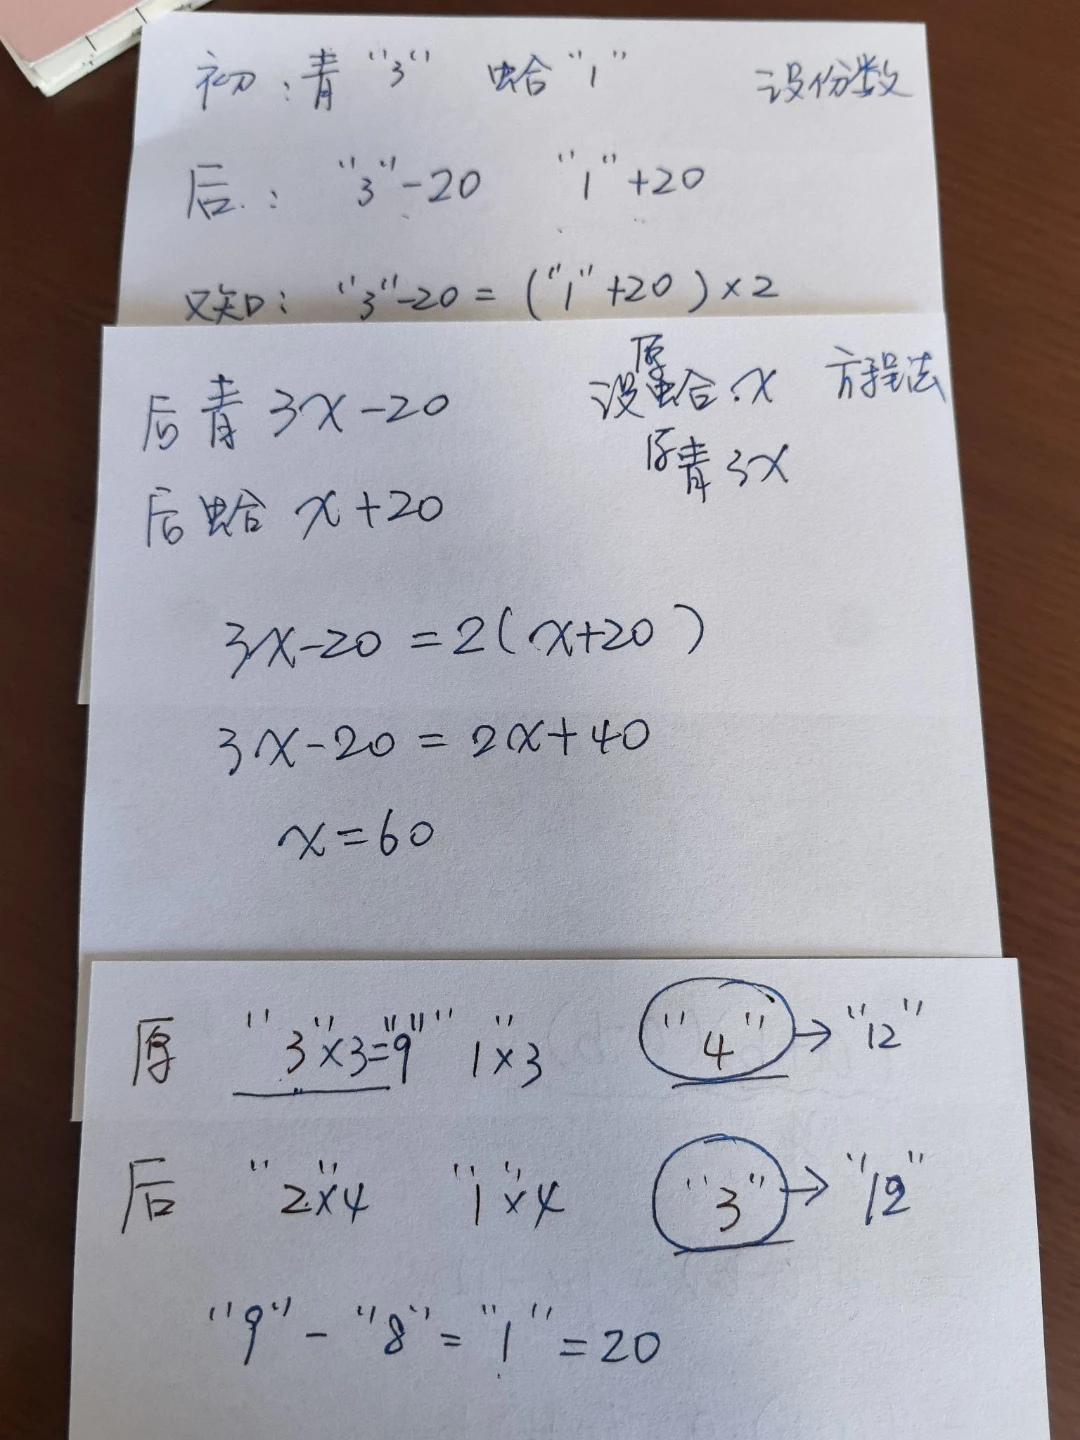 初：青 "3" 蛤 "1" 设份数
后："3"-20 "1"+20
又知："3"-20=("1"+20)×2
后青 3x-20 设原蛤.x 方程法
原青 3x
后蛤 x+20
3x-20=2(x+20)
3x-20=2x+40
x=60
原 "3"×3="9" "1"×3 "4"→"12"
后 "2"×4 "1"×4 "3"→"12"
"9"-"8"="1"=20